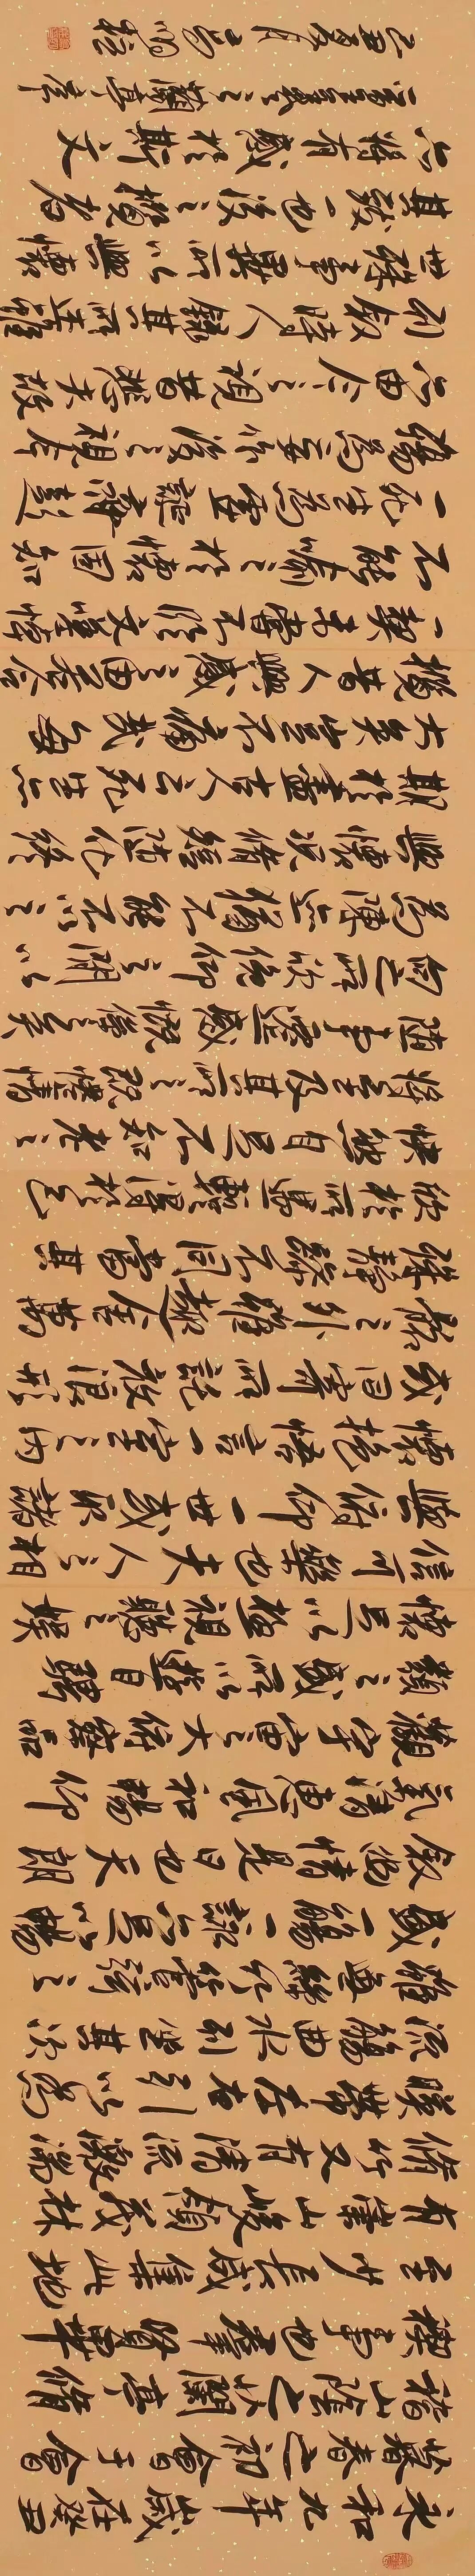 永和九年歲在癸丑
暮春之初會于會
稽山陰之蘭亭脩
禊事也群賢畢
至少長咸集此地
有崇山峻領茂林
脩竹又有清流激湍
暎帶左右引以為
流觴曲水列坐其次
雖無絲竹管弦之
盛一觴一詠亦足以暢
敘幽情是日也天朗
氣清惠風和暢仰
觀宇宙之大俯察品
類之盛所以遊目騁
懷足以極視聽之娛
信可樂也夫人之相
與俯仰一世或取諸
懷抱悟言一室之內
或因寄所託放浪形
骸之外雖趣舍萬
殊靜躁不同當其
欣於所遇蹔得於己
快然自足不知老之
將至及其所之既惓情
隨事遷感慨係之矣
向之所欣俛仰之間以
為陳迹猶不能不以之
興懷況脩短隨化終
期於盡古人云死生亦
大矣豈不痛哉每
攬昔人興感之由若合
一契未嘗不臨文嗟悼
不能喻之於懷固知
一死生為虛誕齊彭
殤為妄作後之視今
亦由今之視昔悲夫故
列敘時人錄其所述雖
世殊事異所以興懷
其致一也後之攬者
亦將有感於斯文
王羲之蘭亭序